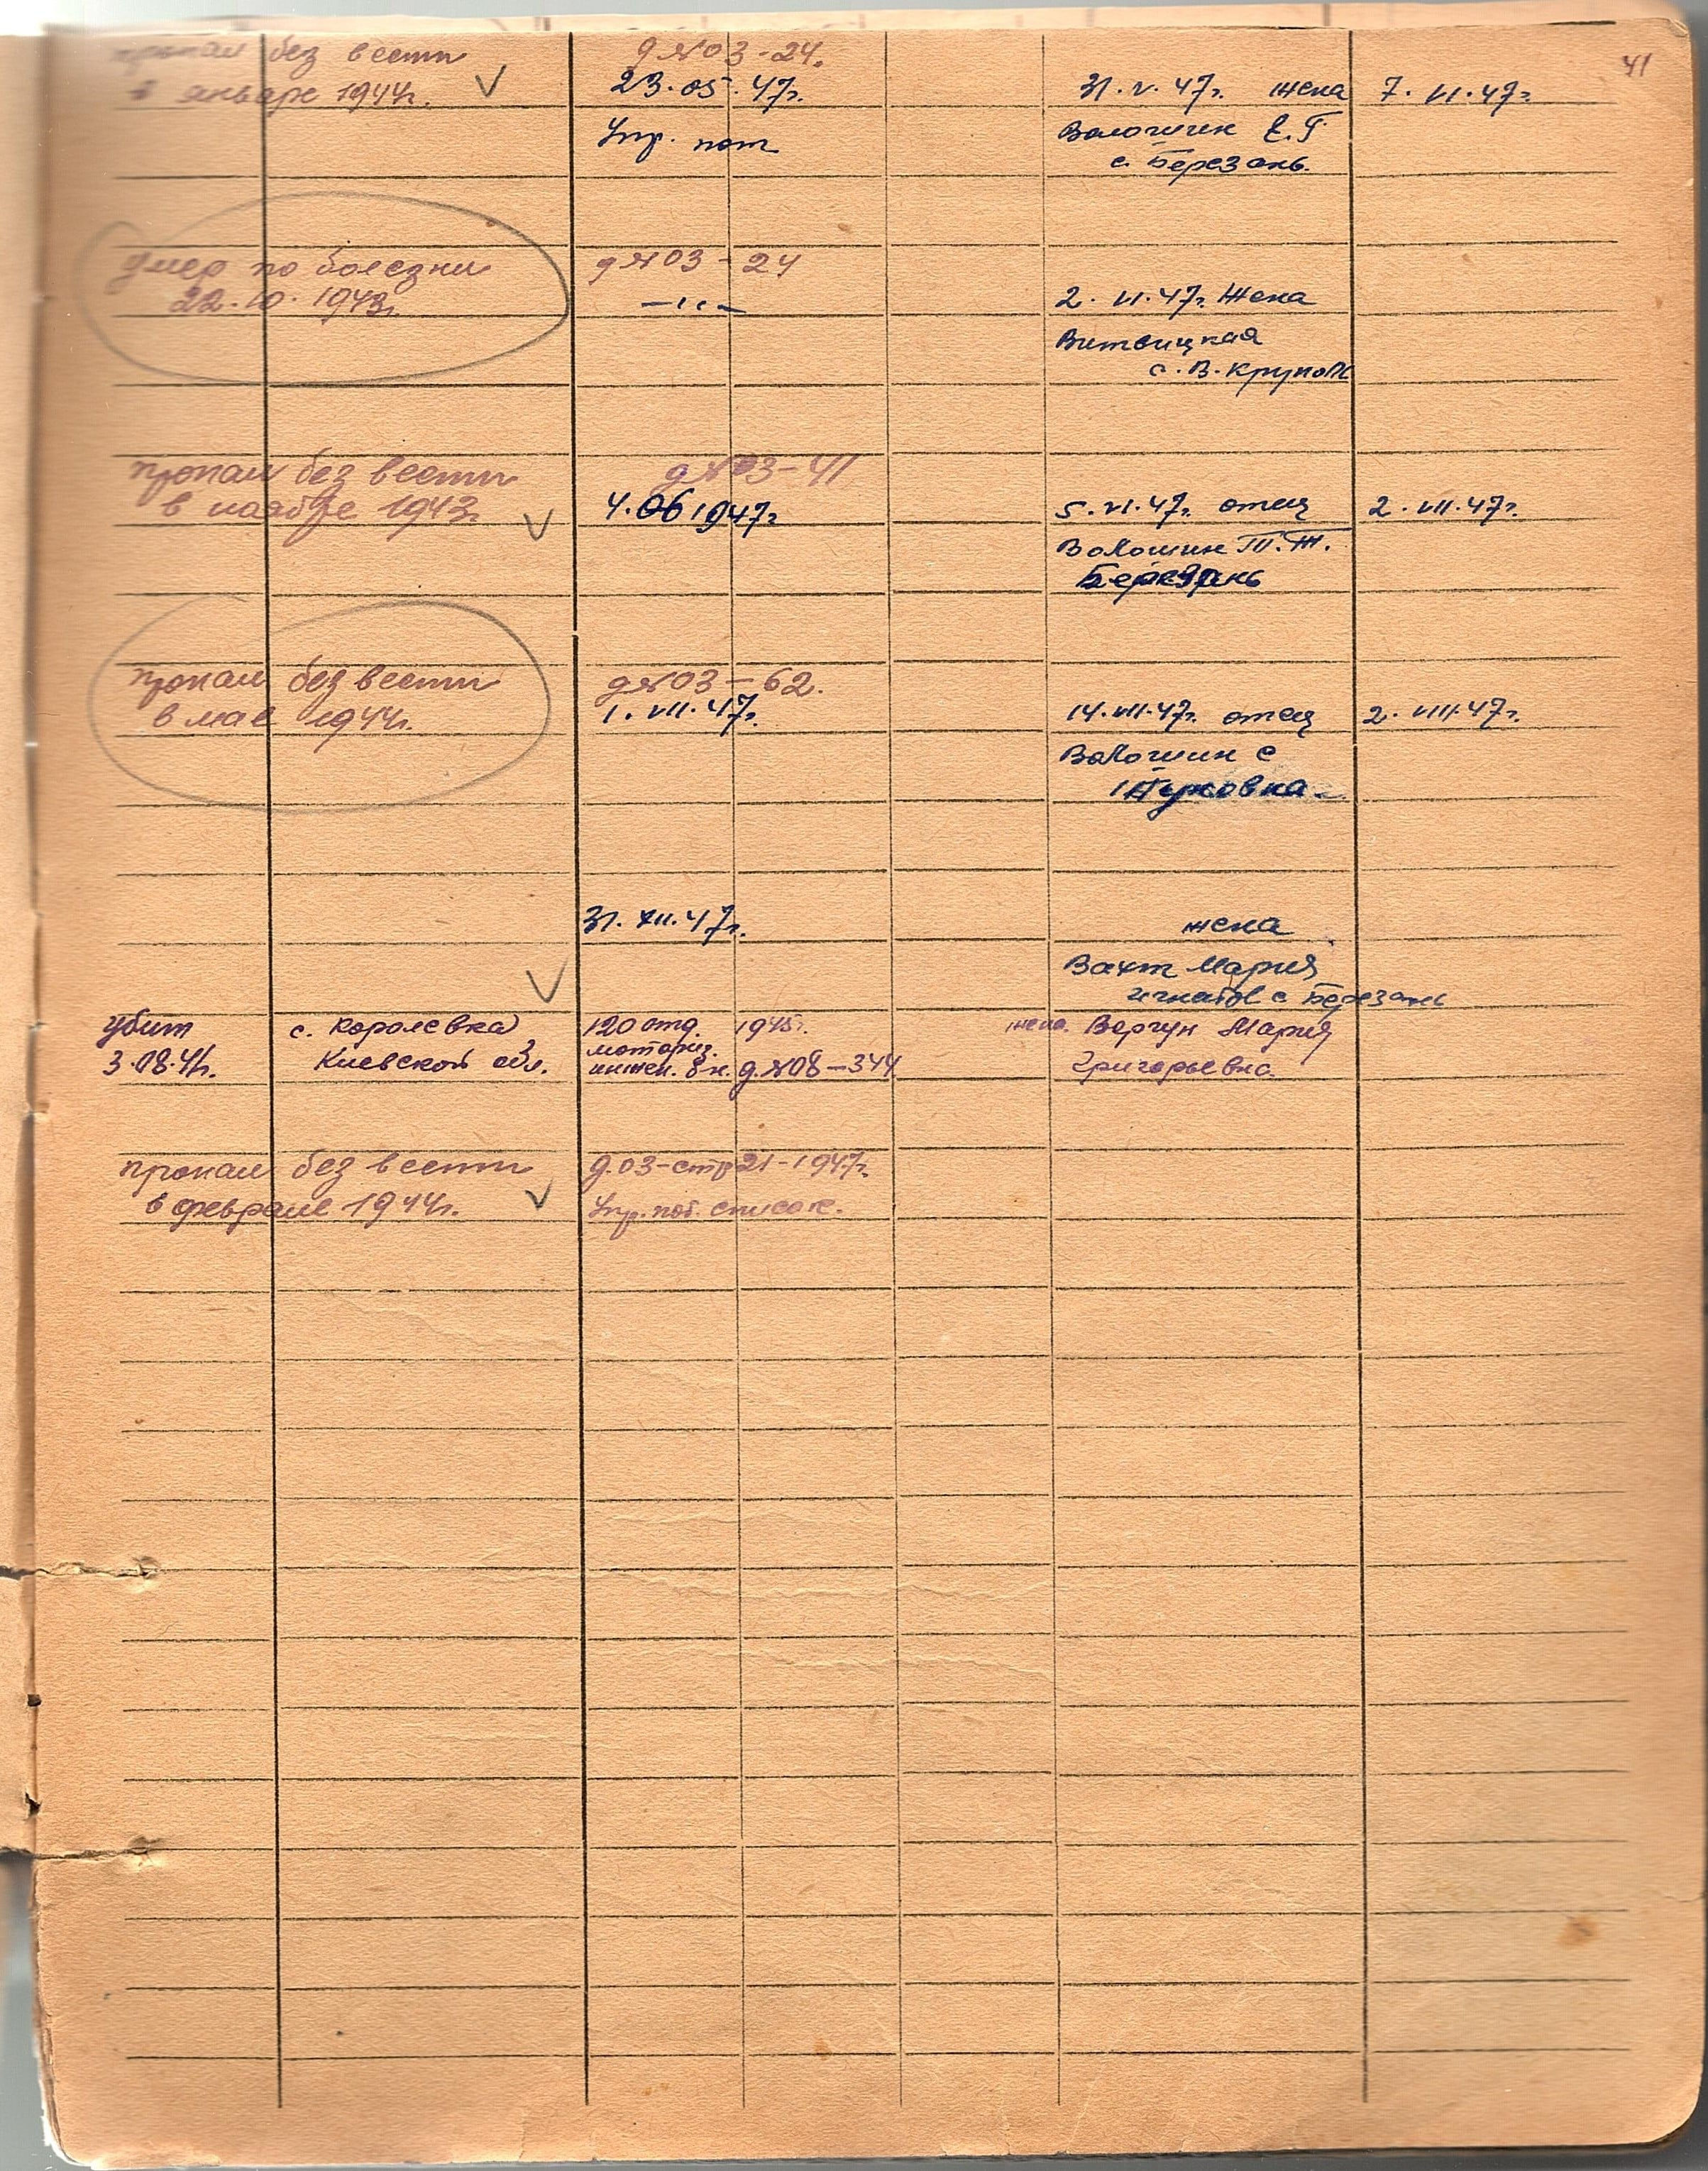 41
пропал без вести
в январе 1944г.
д №03-24.
23.05.47г.
Упр. пот
31.V.47г. жена
Волошин Е.Г
с. Березань.
7.VI.47г.
умер по болезни
22.10.1943г.
д №03-24
—''—
2.VI.47г. жена
Витвицкая
с. В. Крупол
пропал без вести
в ноябре 1943г.
д №03-41
4.06 1947г
5.VI.47г. отец
Волошин Т.Т.
Березань
2.VII.47г.
пропал без вести
в мае 1944г.
д №03-62.
1.VII.47г.
14.VII.47г. отец
Волошин с
2.VIII.47г.
31.XII.47г.
жена
Вахт Мария
с Березань
убит
3.08.41г.
с. Королевка
Киевской обл.
120 отд. 1945г.
моториз.
инжен. бн. д.№08-344
жена. Вергун Мария
Григорьевна.
пропал без вести
в феврале 1944г.
д.03-стр 21-1947г.
Упр. пот. список.